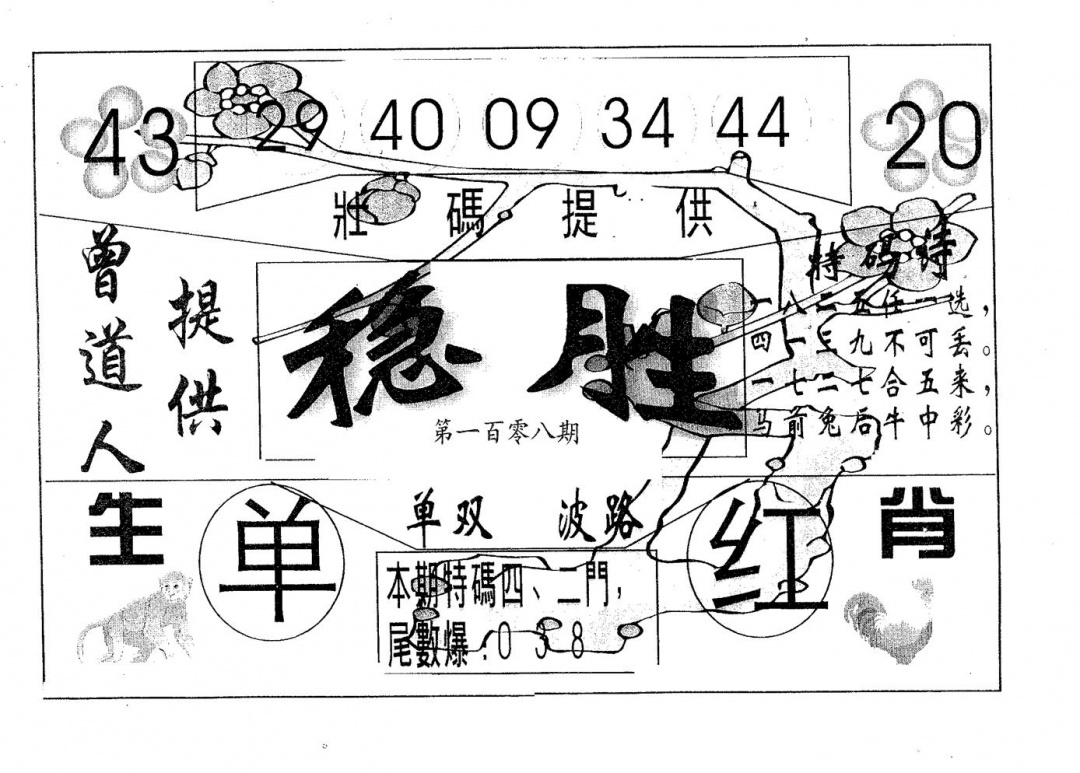 43 29 40 09 34 44 20
壯碼提供
曾道人
提供
稳胜
第一百零八期
特码诗
一八二五任一选，
四一三九不可丢。
一七二七合五来，
马前兔后牛中彩。
生肖
单
单双 波路
红
本期特碼四、二門，
尾數爆:0 3 8